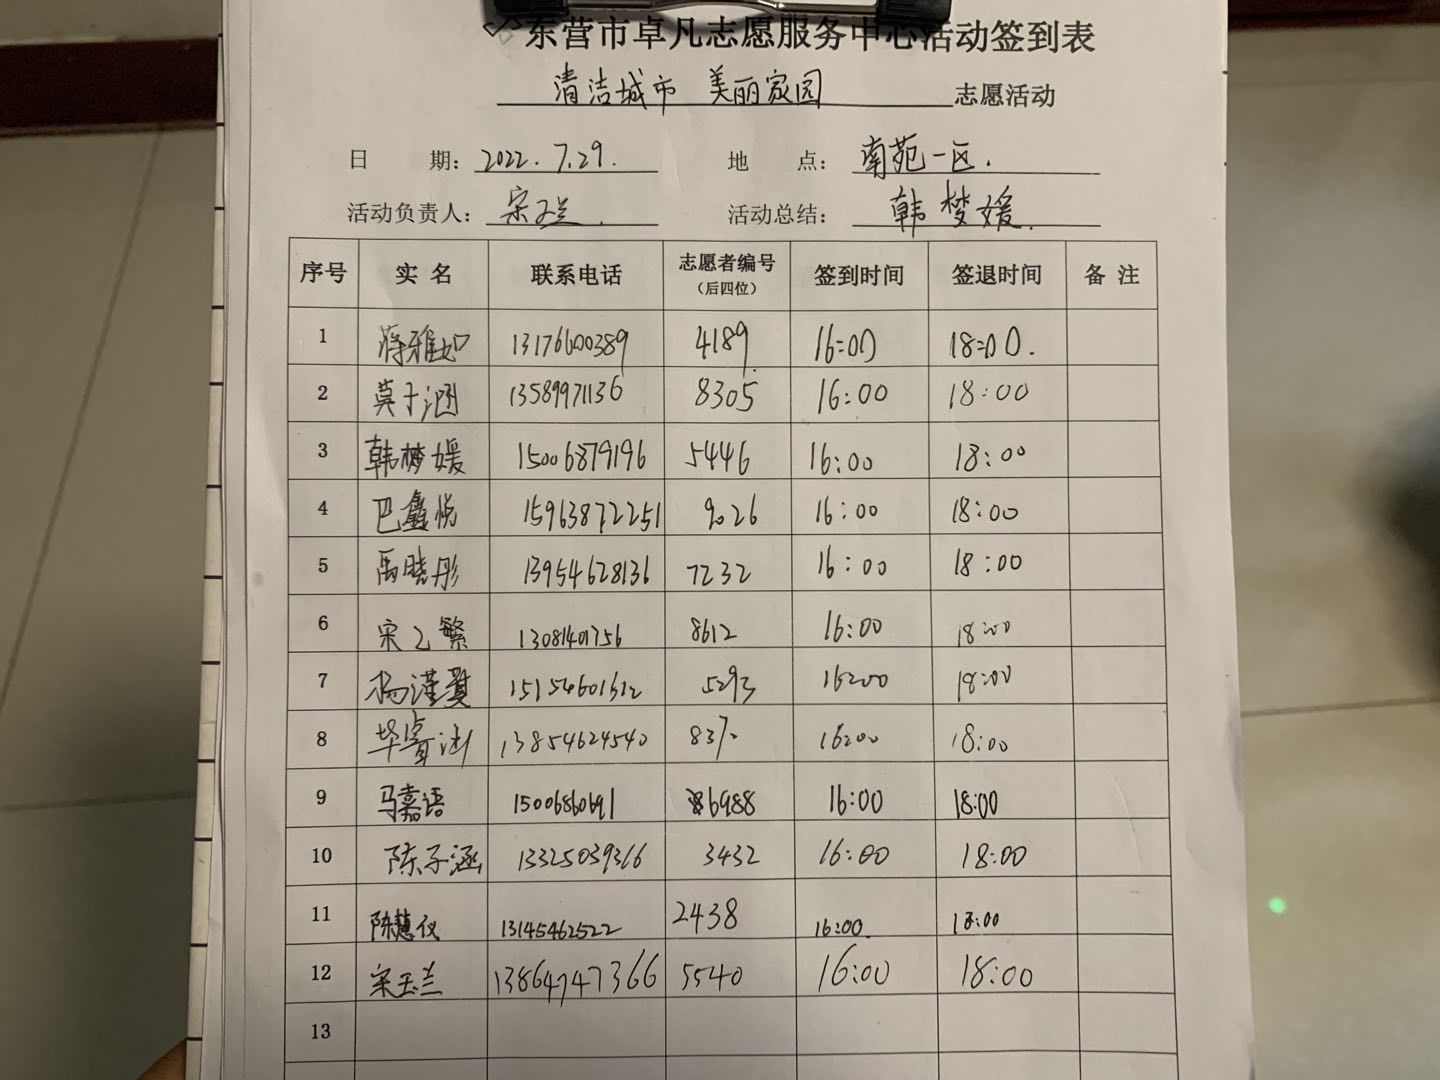 东营市卓凡志愿服务中心活动签到表
清洁城市 美丽家园 志愿活动
日 期: 2022.7.29. 地 点: 南苑一区.
活动负责人: 宋玉兰. 活动总结: 韩梦媛.
序号 实名 联系电话 志愿者编号(后四位) 签到时间 签退时间 备注
1 蒋雅如 13176600389 4189 16:00 18:00.
2 莫子涵 13589971136 8305 16:00 18:00
3 韩梦媛 15006879196 5446 16:00 18:00
4 巴鑫悦 15963872251 9026 16:00 18:00
5 禹晓彤 13954628136 7232 16:00 18:00
6 宋乙繁 13081401756 8612 16:00 18:00
7 杨瑾 15154601612 5293 16:00 18:00
8 毕睿涵 13854624540 16:00 18:00
9 马嘉语 15006860691 6988 16:00 18:00
10 陈子涵 13325039366 3432 16:00 18:00
11 陈慧仪 13145462522 2438 16:00. 18:00
12 宋玉兰 13864747366 5540 16:00 18:00
13